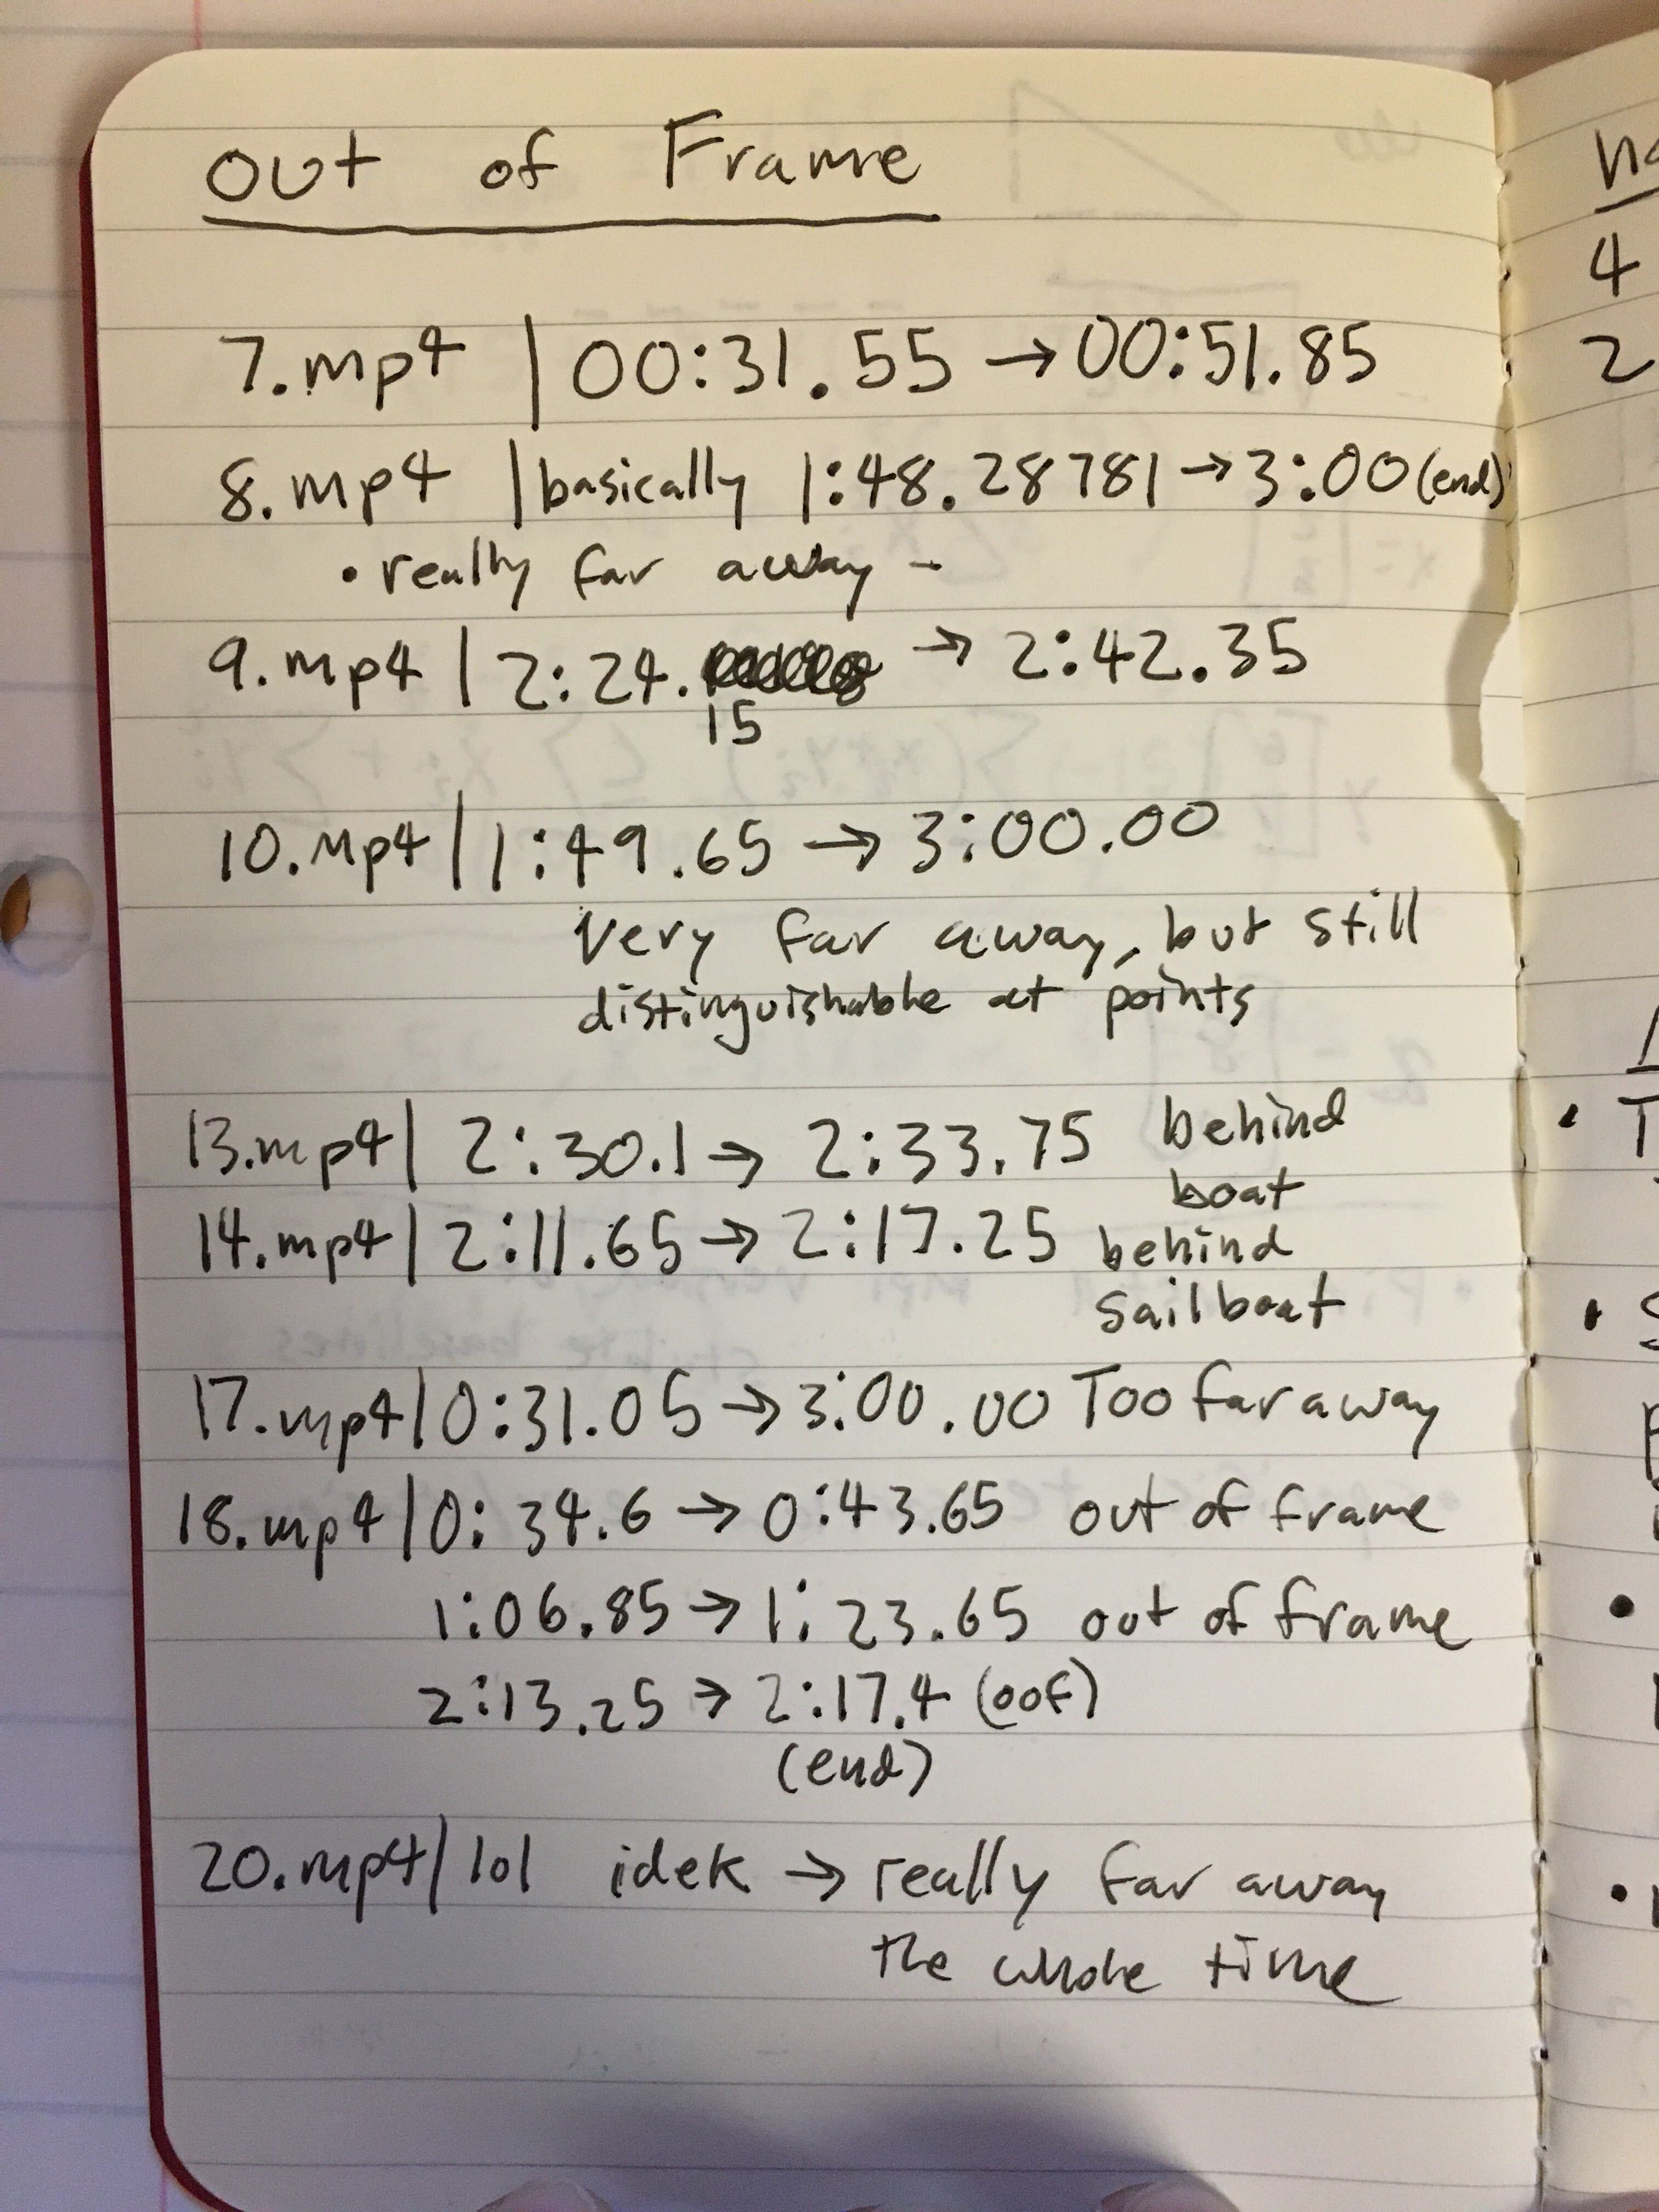 out of Frame
7.mp4 | 00:31.55 → 00:51.85
8.mp4 | basically 1:48.28781 → 3:00 (end)
• really far away -
9.mp4 | 2:24. → 2:42.35
15
10.mp4 | 1:49.65 → 3:00.00
Very far away, but still
distinguishable at points
13.mp4 | 2:30.1 → 2:33.75 behind
boat
14.mp4 | 2:11.65 → 2:17.25 behind
sailboat
17.mp4 | 0:31.05 → 3:00.00 Too far away
18.mp4 | 0:34.6 → 0:43.65 out of frame
1:06.85 → 1:23.65 out of frame
2:13.25 → 2:17.4 (oof)
(end)
20.mp4 | lol idek → really far away
the whole time
4
2